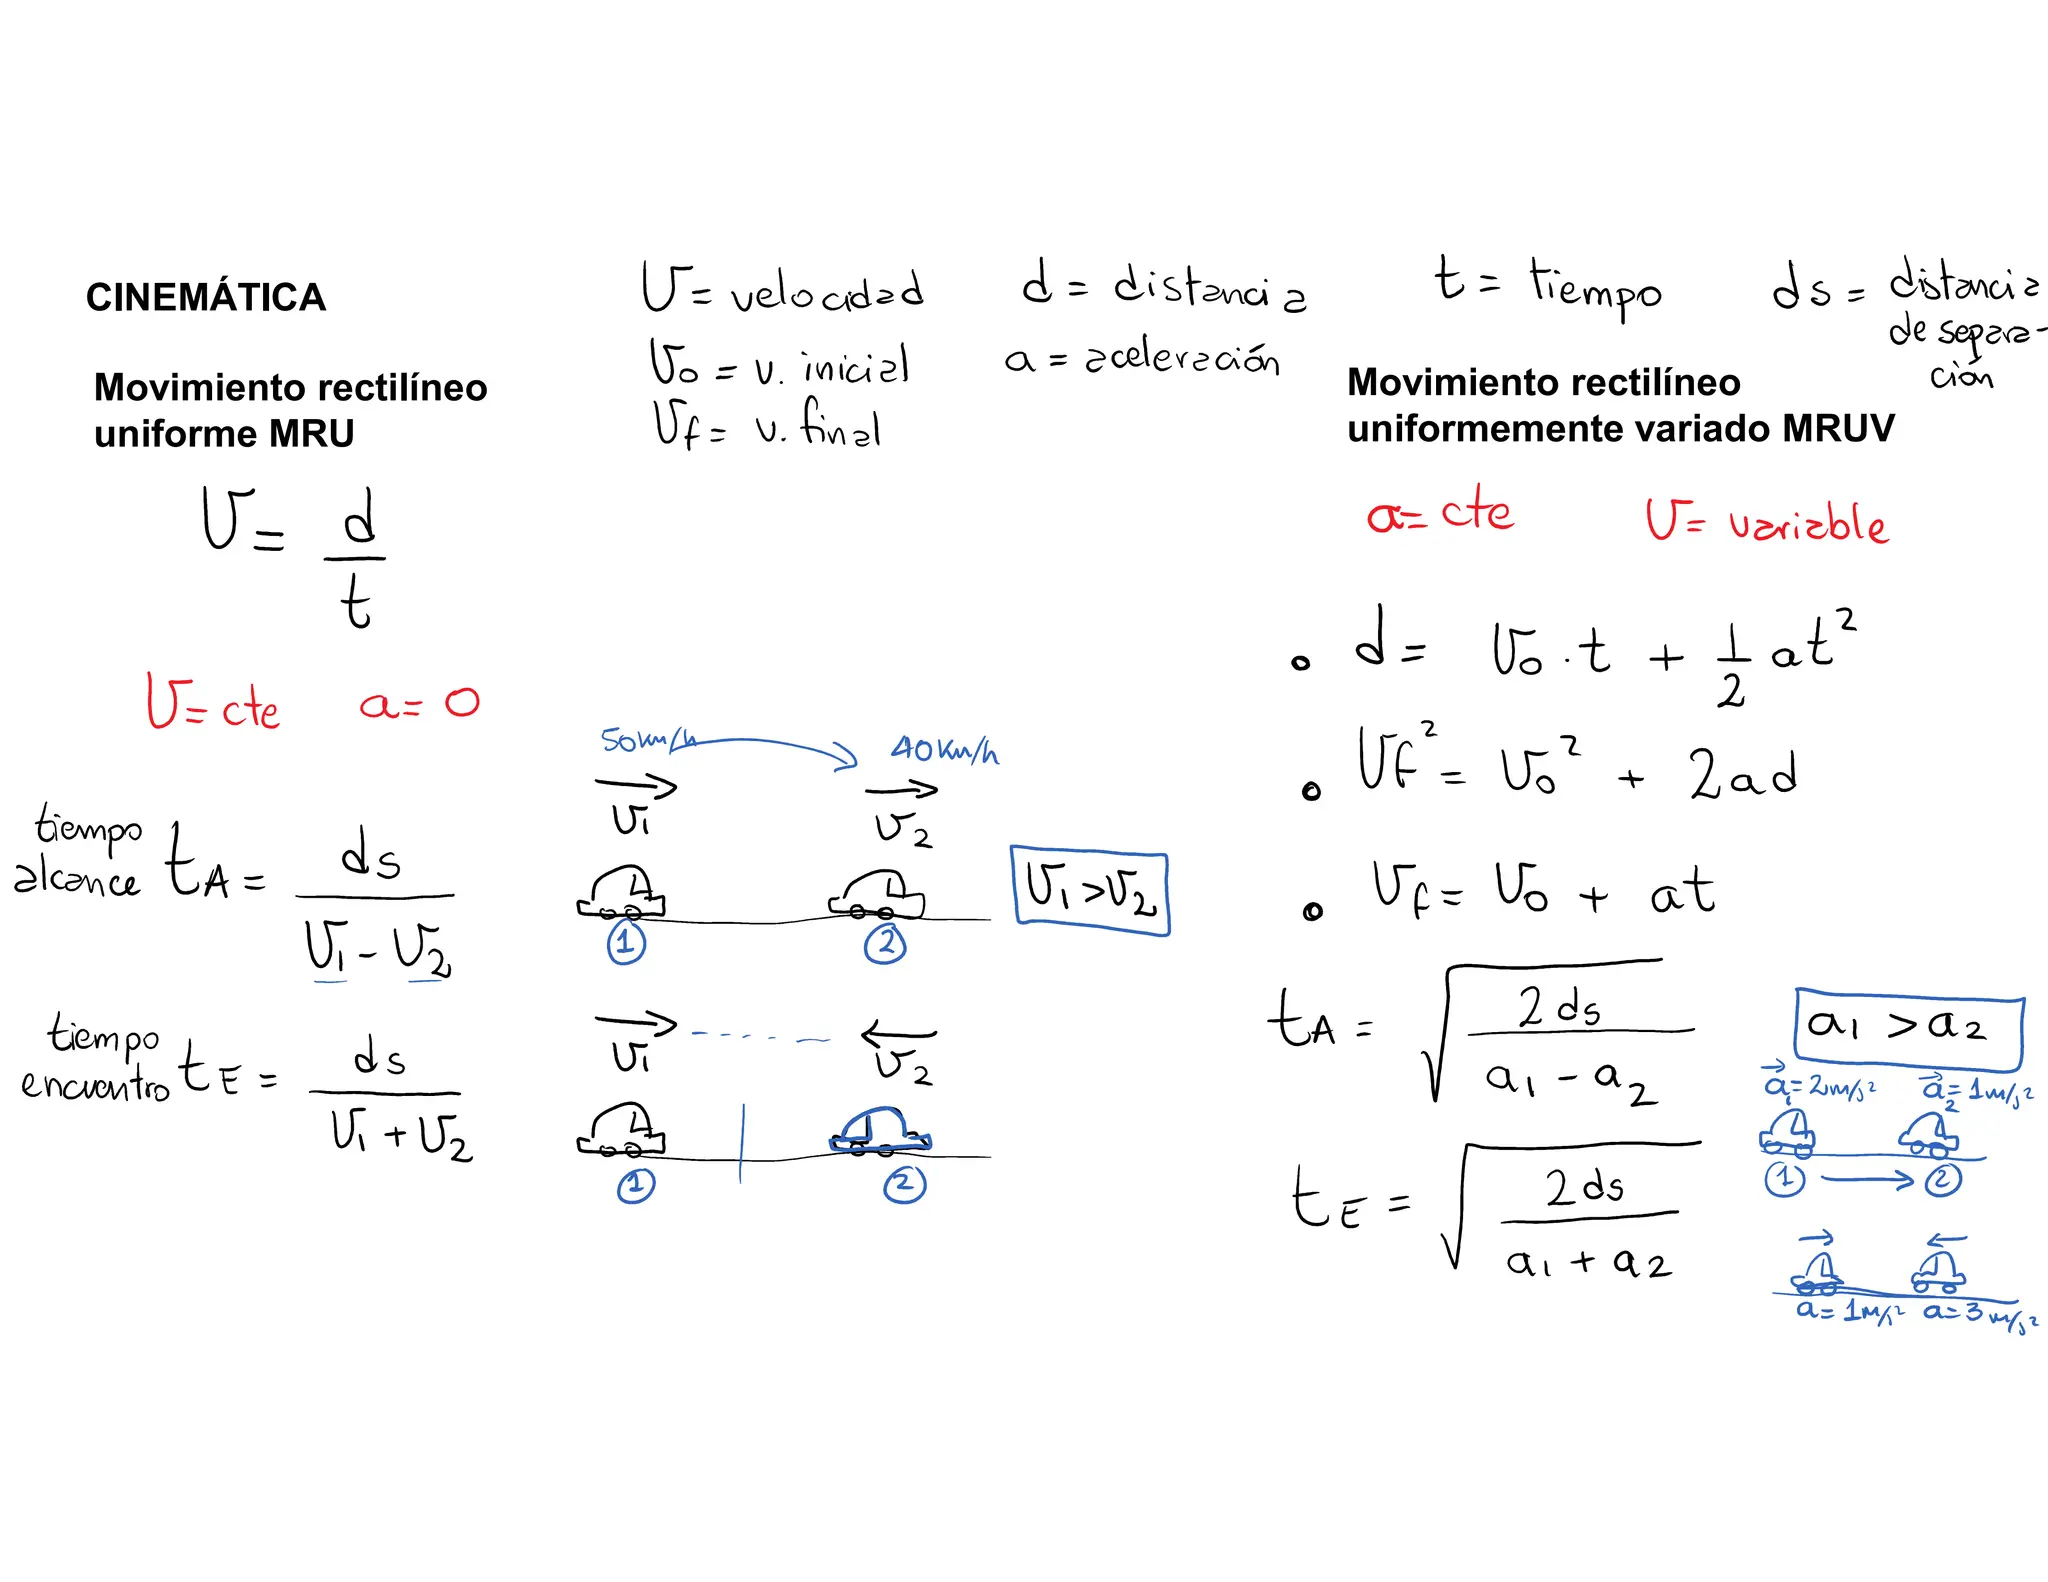 CINEMÁTICA
v = velocidad
v₀ = v. inicial
vf = v. final
d = distancia
a = aceleración
t = tiempo
ds = distancia
de separa-
ción
Movimiento rectilíneo
uniforme MRU
v = d/t
v = cte a = 0
tiempo
alcance tA = ds/(v₁ - v₂)
50 km/h 40 km/h
v₁ v₂
v₁ > v₂
1 2
tiempo
encuentro tE = ds/(v₁ + v₂)
v₁ v₂
1 2
Movimiento rectilíneo
uniformemente variado MRUV
a = cte v = variable
• d = v₀ . t + 1/2 at²
• vf² = v₀² + 2ad
• vf = v₀ + at
tA = √(2ds/(a₁ - a₂))
a₁ > a₂
a₁ = 2m/s² a₂ = 1m/s²
1 2
tE = √(2ds/(a₁ + a₂))
a = 1m/s² a = 3m/s²